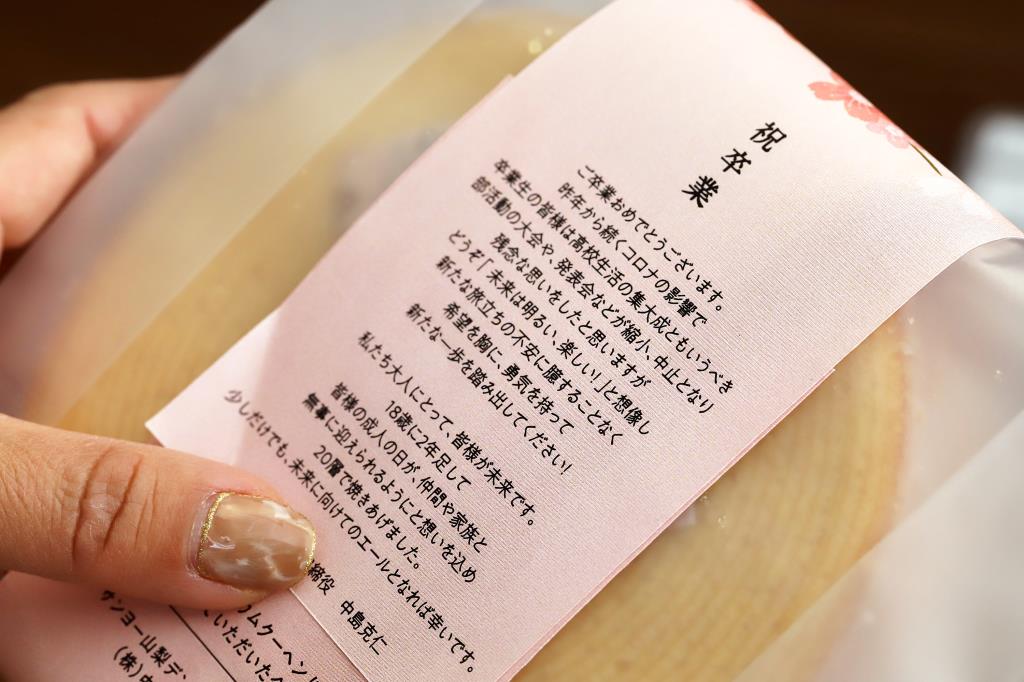 祝卒業
ご卒業おめでとうございます。
昨年から続くコロナの影響で
卒業生の皆様は高校生活の集大成ともいうべき
部活動の大会や、発表会などが縮小、中止となり
残念な思いをしたと思いますが
どうぞ「未来は明るい、楽しい！」と想像し
新たな旅立ちの不安に臆することなく
希望を胸に、勇気を持って
新たな一歩を踏み出してください！
私たち大人にとって、皆様が未来です。
18歳に2年足して
皆様の成人の日が、仲間や家族と
無事に迎えられるようにと想いを込め
20層で焼きあげました。
少しだけでも、未来に向けてのエールとなれば幸いです。
締役　中島克仁
ムクーヘン
いただいた
サンヨー山梨デ
(株)